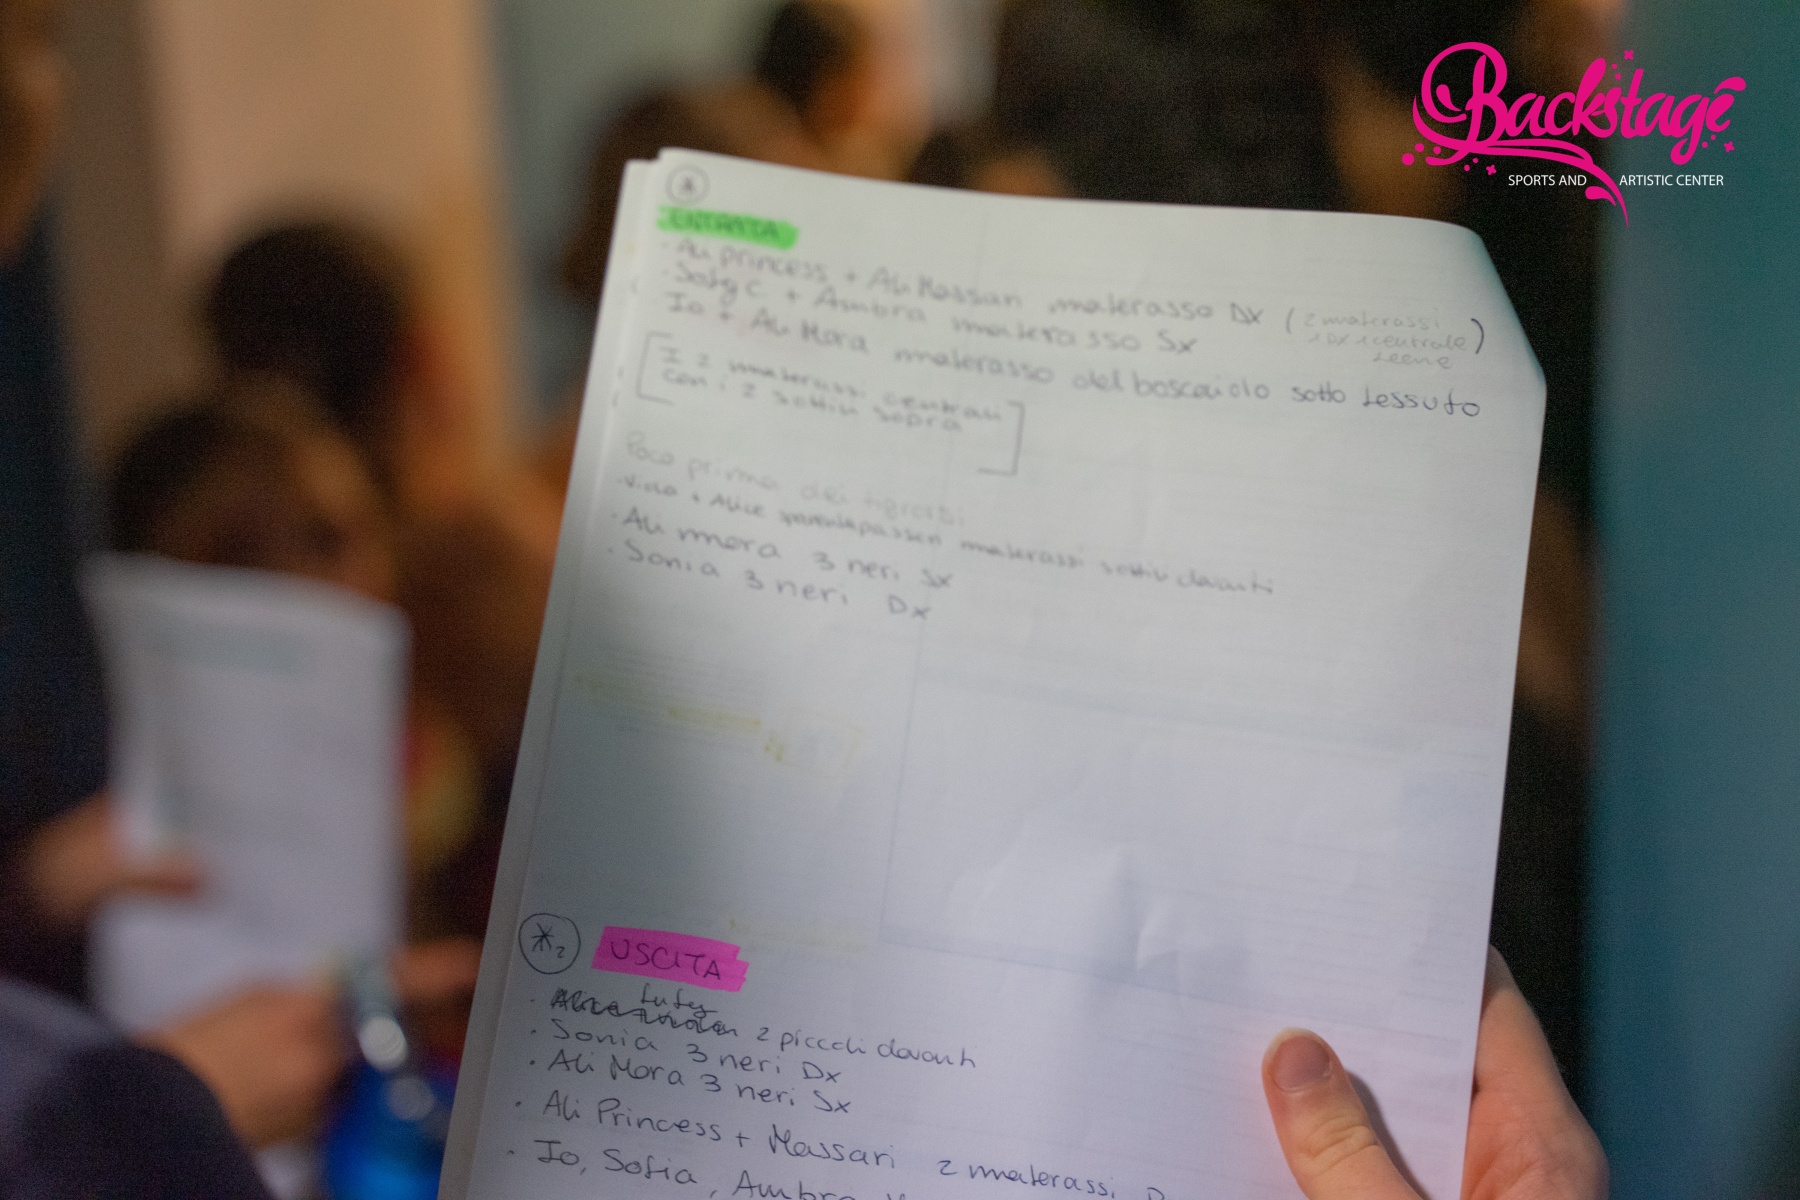 Backstage
SPORTS AND ARTISTIC CENTER
ENTRATA
· Ali princess + Ali Massari materasso Dx (2 materassi
1 Dx 1 centrale
Leene)
· Sofy C + Ambra materasso Sx
· Io + Ali Mora materasso del boscaiolo sotto tessuto
[I 2 materassi centrali
con i 2 sottili sopra]
Poco prima dei
· Viola + Alice materassi sottili davanti
· Ali mora 3 neri Sx
· Sonia 3 neri Dx
*2 USCITA
· 2 piccoli davanti
· Sonia 3 neri Dx
· Ali Mora 3 neri Sx
· Ali Princess + Massari 2 materassi D
· Io, Sofia, Ambra